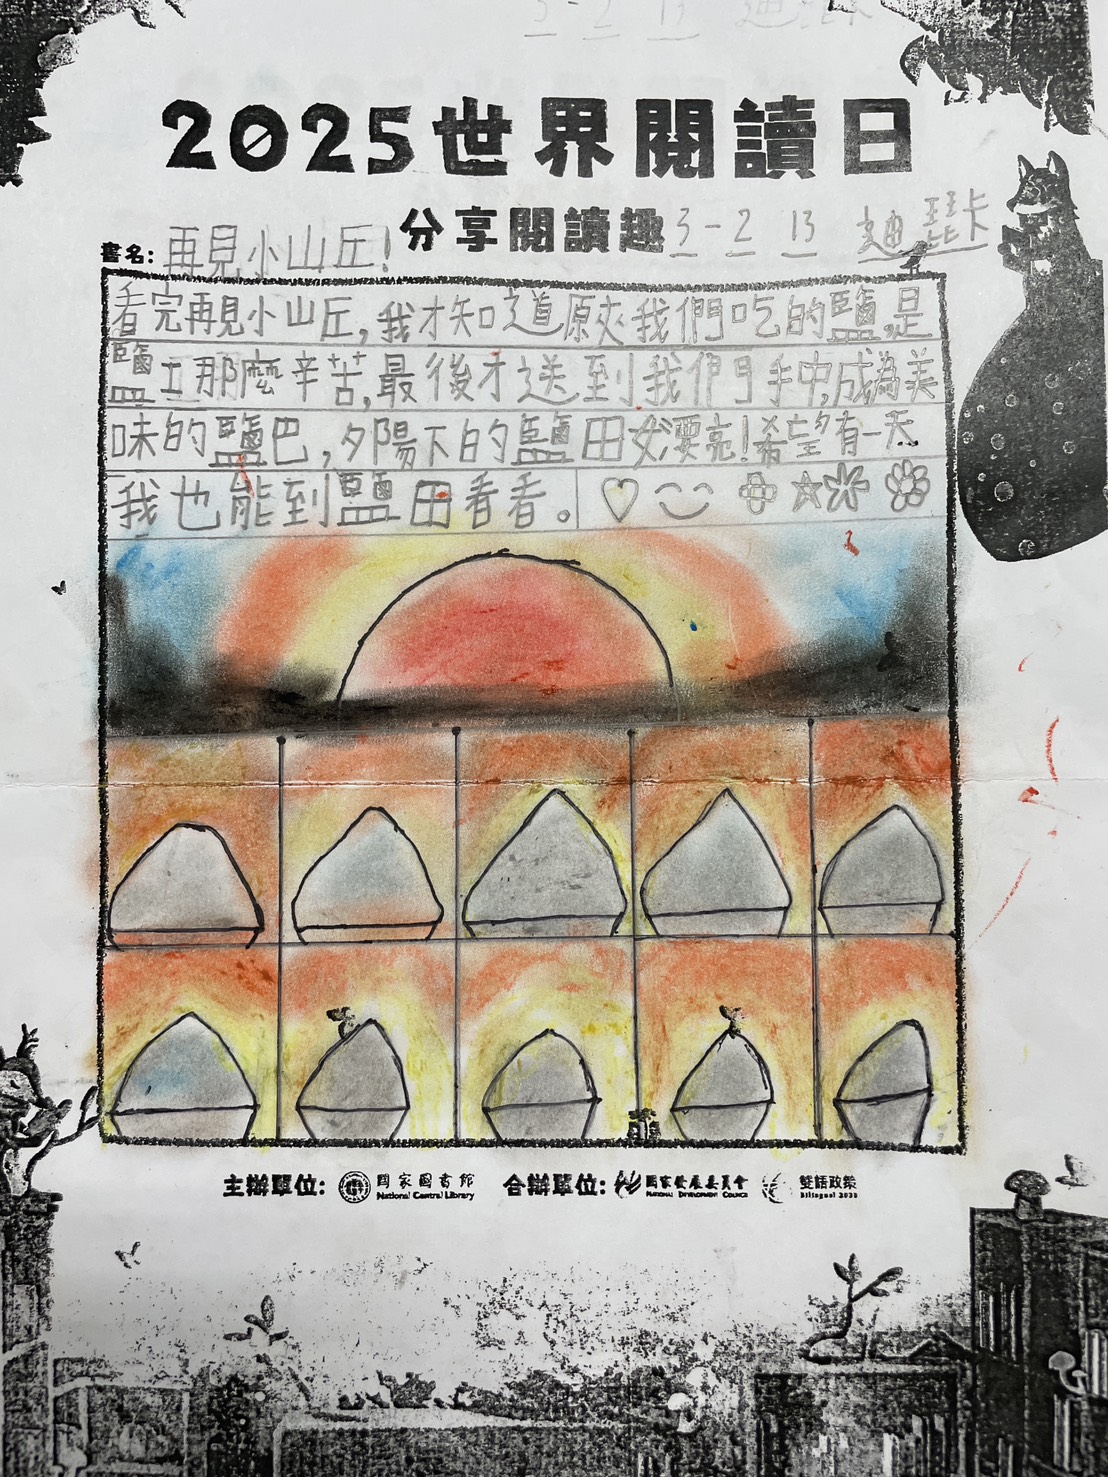 2025世界閱讀日
分享閱讀趣 3-2 13
書名: 再見小山丘!
看完再見小山丘,我才知道原來我們吃的鹽,是
鹽工那麼辛苦,最後才送到我們手中,成為美
味的鹽巴,夕陽下的鹽田好漂亮!希望有一天
我也能到鹽田看看。
主辦單位: 國家圖書館 National Central Library 合辦單位: 國家發展委員會 NATIONAL DEVELOPMENT COUNCIL 雙語政策 Bilingual 2030